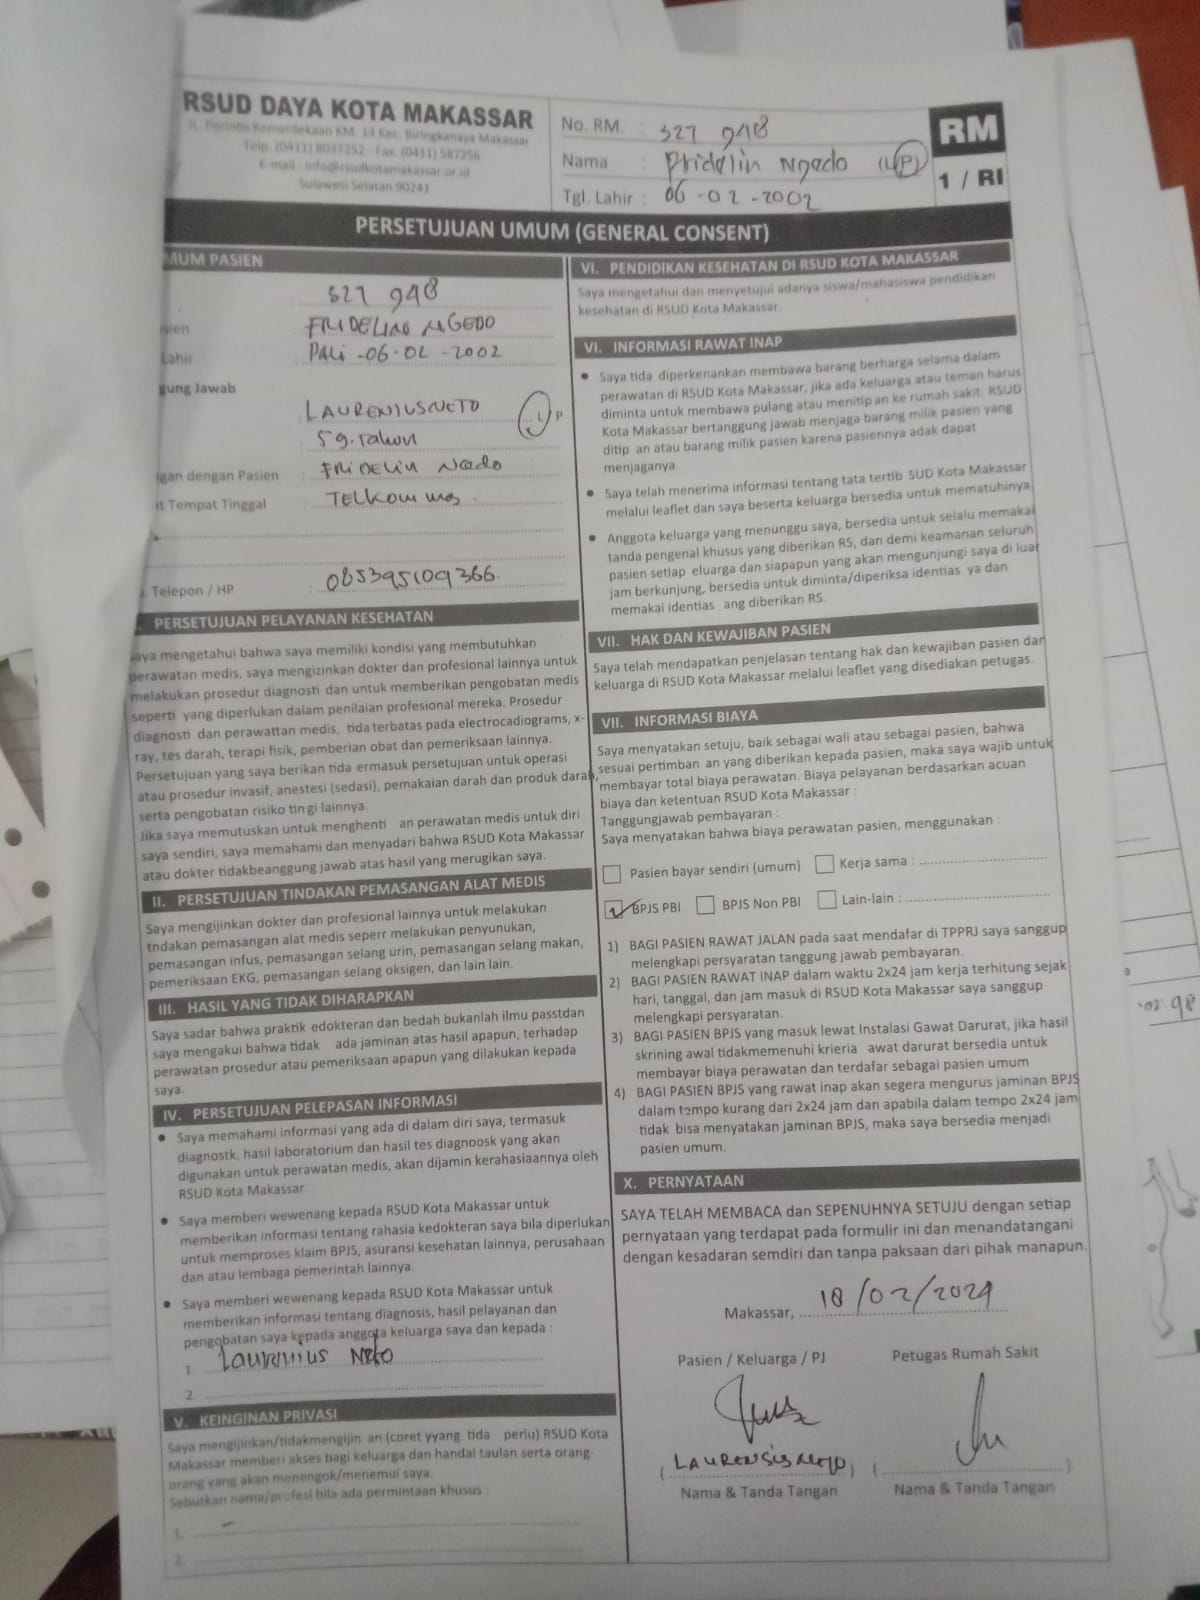 RSUD DAYA KOTA MAKASSAR
JL. Perintis Kemerdekaan KM. 14 Kec. Biringkanaya Makassar
Telp. (0411) 8037252 - Fax. (0411) 587256
E-mail : info@rsudkotamakassar.or.id
Sulawesi Selatan 90241
No. RM. : 327 948
Nama : Pridelin Ngedo (L/P)
Tgl. Lahir : 06-02-2002
RM
1 / RI
PERSETUJUAN UMUM (GENERAL CONSENT)
MUM PASIEN
327 948
sien FRIDELINO NGEDO
Lahir PALI-06-02-2002
gung Jawab
LAURENIUSNETO L P
59. Tahun
ngan dengan Pasien : FRIDELIN Ngedo
at Tempat Tinggal : TELKOM
. Telepon / HP : 085395109366.
. PERSETUJUAN PELAYANAN KESEHATAN
Saya mengetahui bahwa saya memiliki kondisi yang membutuhkan
perawatan medis, saya mengizinkan dokter dan profesional lainnya untuk
melakukan prosedur diagnosti dan untuk memberikan pengobatan medis
seperti yang diperlukan dalam penilaian profesional mereka. Prosedur
diagnosti dan perawattan medis, tida terbatas pada electrocadiograms, x-
ray, tes darah, terapi fisik, pemberian obat dan pemeriksaan lainnya.
Persetujuan yang saya berikan tida ermasuk persetujuan untuk operasi
atau prosedur invasif, anestesi (sedasi), pemakaian darah dan produk darah,
serta pengobatan risiko tin gi lainnya.
Jika saya memutuskan untuk menghenti an perawatan medis untuk diri
saya sendiri, saya memahami dan menyadari bahwa RSUD Kota Makassar
atau dokter tidakbeanggung jawab atas hasil yang merugikan saya.
II. PERSETUJUAN TINDAKAN PEMASANGAN ALAT MEDIS
Saya mengijinkan dokter dan profesional lainnya untuk melakukan
tndakan pemasangan alat medis seperr melakukan penyunukan,
pemasangan infus, pemasangan selang urin, pemasangan selang makan,
pemeriksaan EKG, pemasangan selang oksigen, dan lain lain.
III. HASIL YANG TIDAK DIHARAPKAN
Saya sadar bahwa praktik edokteran dan bedah bukanlah ilmu passtdan
saya mengakui bahwa tidak ada jaminan atas hasil apapun, terhadap
perawatan prosedur atau pemeriksaan apapun yang dilakukan kepada
saya.
IV. PERSETUJUAN PELEPASAN INFORMASI
• Saya memahami informasi yang ada di dalam diri saya, termasuk
diagnostk, hasil laboratorium dan hasil tes diagnoosk yang akan
digunakan untuk perawatan medis, akan dijamin kerahasiaannya oleh
RSUD Kota Makassar.
• Saya memberi wewenang kepada RSUD Kota Makassar untuk
memberikan informasi tentang rahasia kedokteran saya bila diperlukan
untuk memproses klaim BPJS, asuransi kesehatan lainnya, perusahaan
dan atau lembaga pemerintah lainnya.
• Saya memberi wewenang kepada RSUD Kota Makassar untuk
memberikan informasi tentang diagnosis, hasil pelayanan dan
pengobatan saya kepada anggota keluarga saya dan kepada :
1. Laurinius Neto
2.
V. KEINGINAN PRIVASI
Saya mengijinkan/tidakmengijin an (coret yyang tida perlu) RSUD Kota
Makassar memberi akses bagi keluarga dan handai taulan serta orang-
orang yang akan menengok/menemui saya.
Sebutkan nama/profesi bila ada permintaan khusus :
1. -
2.
VI. PENDIDIKAN KESEHATAN DI RSUD KOTA MAKASSAR
Saya mengetahui dan menyetujui adanya siswa/mahasiswa pendidikan
kesehatan di RSUD Kota Makassar.
VI. INFORMASI RAWAT INAP
• Saya tida diperkenankan membawa barang berharga selama dalam
perawatan di RSUD Kota Makassar, jika ada keluarga atau teman harus
diminta untuk membawa pulang atau menitip an ke rumah sakit. RSUD
Kota Makassar bertanggung jawab menjaga barang milik pasien yang
ditip an atau barang milik pasien karena pasiennya adak dapat
menjaganya.
• Saya telah menerima informasi tentang tata tertib SUD Kota Makassar
melalui leaflet dan saya beserta keluarga bersedia untuk mematuhinya.
• Anggota keluarga yang menunggu saya, bersedia untuk selalu memakai
tanda pengenal khusus yang diberikan RS, dan demi keamanan seluruh
pasien setiap eluarga dan siapapun yang akan mengunjungi saya di luar
jam berkunjung, bersedia untuk diminta/diperiksa identias ya dan
memakai identias ang diberikan RS.
VII. HAK DAN KEWAJIBAN PASIEN
Saya telah mendapatkan penjelasan tentang hak dan kewajiban pasien dan
keluarga di RSUD Kota Makassar melalui leaflet yang disediakan petugas.
VII. INFORMASI BIAYA
Saya menyatakan setuju, baik sebagai wali atau sebagai pasien, bahwa
sesuai pertimban an yang diberikan kepada pasien, maka saya wajib untuk
membayar total biaya perawatan. Biaya pelayanan berdasarkan acuan
biaya dan ketentuan RSUD Kota Makassar :
Tanggungjawab pembayaran :
Saya menyatakan bahwa biaya perawatan pasien, menggunakan :
Pasien bayar sendiri (umum) Kerja sama :
BPJS PBI BPJS Non PBI Lain-lain :
1) BAGI PASIEN RAWAT JALAN pada saat mendafar di TPPRJ saya sanggup
melengkapi persyaratan tanggung jawab pembayaran.
2) BAGI PASIEN RAWAT INAP dalam waktu 2x24 jam kerja terhitung sejak
hari, tanggal, dan jam masuk di RSUD Kota Makassar saya sanggup
melengkapi persyaratan.
3) BAGI PASIEN BPJS yang masuk lewat Instalasi Gawat Darurat, jika hasil
skrining awal tidakmemenuhi krieria awat darurat bersedia untuk
membayar biaya perawatan dan terdafar sebagai pasien umum
4) BAGI PASIEN BPJS yang rawat inap akan segera mengurus jaminan BPJS
dalam tempo kurang dari 2x24 jam dan apabila dalam tempo 2x24 jam
tidak bisa menyatakan jaminan BPJS, maka saya bersedia menjadi
pasien umum.
X. PERNYATAAN
SAYA TELAH MEMBACA dan SEPENUHNYA SETUJU dengan setiap
pernyataan yang terdapat pada formulir ini dan menandatangani
dengan kesadaran semdiri dan tanpa paksaan dari pihak manapun.
Makassar, 18/02/2024
Pasien / Keluarga / PJ Petugas Rumah Sakit
( LAURENSIS NETO ) ( )
Nama & Tanda Tangan Nama & Tanda Tangan